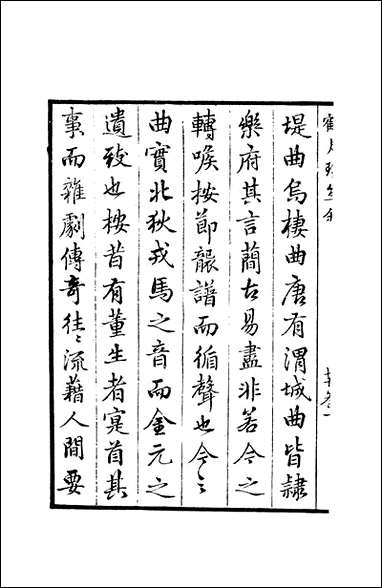 堤曲烏棲曲唐有渭城曲皆隸
樂府其言蕳古易盡非若今之
轉喉按節龤譜而循聲也今之
曲實北狄戎馬之音而金元之
遺致也按昔有董生者寔首其
事而雜劇傳奇往〻流藉人間要